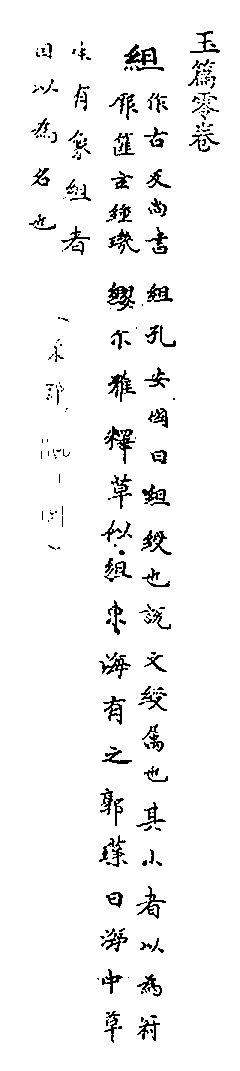 玉篇零卷
組
作古反尚書
厥篚玄纁璣
組孔安國曰組綬也說文綬属也其小者以為冠
纓尒雅釋草似組東海有之郭璞曰海中草
生有象組者
因以為名也